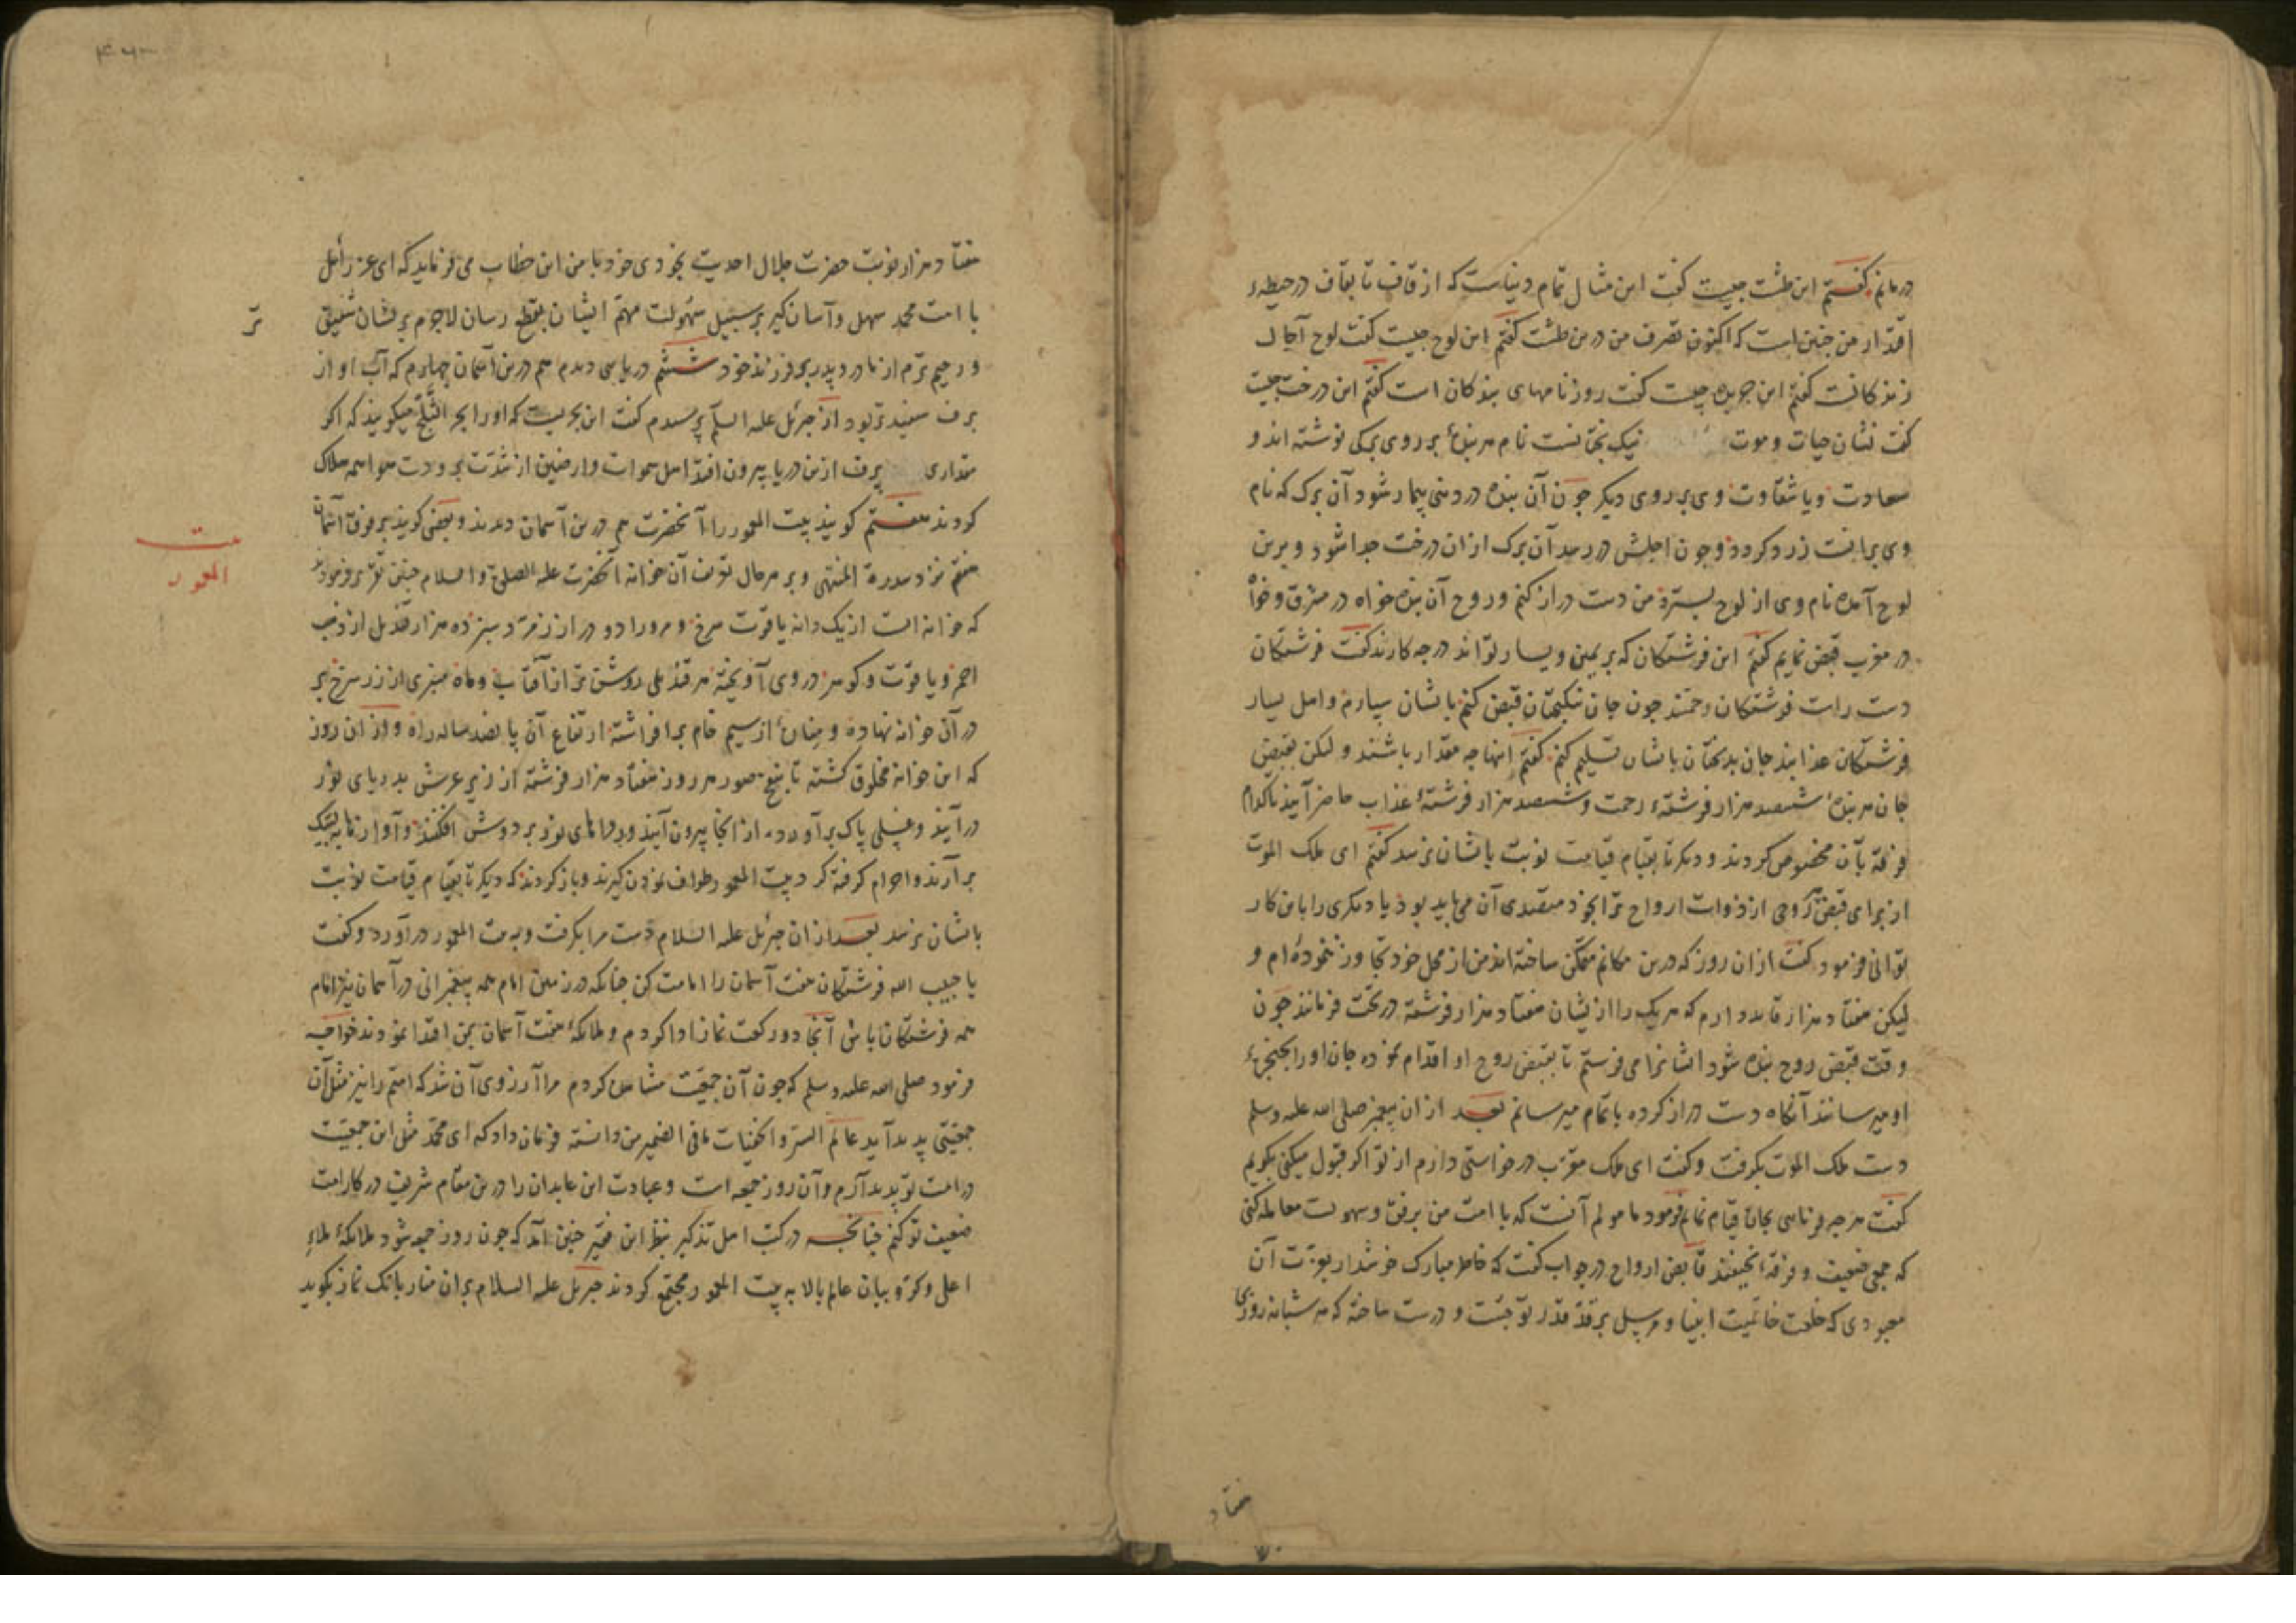 در مانم گفتم این طشت چیست گفت این مثال تمام دنیاست که از قاف تا بقاف در حیطهء
اقتدار من چنین است که اکنون تصرف من درین طشت گفتم این لوح چیست گفت لوح آجال
زندکانست گفتم این جریده چیست گفت روزنامهای بندکان است گفتم این درخت چیست
گفت نشان حیات و موت نیک بختانست نام هر بندهٔ بر روی برکی نوشته اند و
سعادت و یا شقاوت وی بر روی دیکر چون آن بنده در دنیی بیمار شود آن برک که نام
وی برانست زرد کردد و چون اجلش در رسد آن برک ازان درخت جدا شود و برین
لوح آمده نام وی از لوح بسترد من دست دراز کنم و روح آن بنده خواه در مشرق و خواه
در مغرب قبض نمایم گفتم این فرشتکان که بر یمین و یسار تواند در چه کارند گفت فرشتکان
دست راست فرشتکان رحمتند چون جان نیکبختان قبض کنم بایشان سپارم و اهل یسار
فرشتکان عذابند جان بدبختان بایشان تسلیم کنم گفتم اینها چه مقدار باشند و لیکن بقبض
جان هر بندهٔ ششصد هزار فرشتهء رحمت و ششصد هزار فرشتهٔ عذاب حاضر آیند تا کدام
فرقه بآن مخصوص کردند و دیکر تا بقیام قیامت نوبت بایشان نرسد گفتم ای ملک الموت
از برای قبض روحی از ذوات ارواح ترا بخود متصدی آن می باید بود یا دیکری را باین کار
توانی فرمود گفت ازان روز که درین مکانم متمکن ساخته اند من از محل خود تجاوز ننموده ام و
لیکن هفتاد هزار قاید دارم که هر یک را از یشان هفتاد هزار فرشته در تحت فرمانند چون
وقت قبض روح بنده شود ایشانرا می فرستم تا بقبض روح او اقدام نموده جان او را بحنجرهٔ
او میرسانند آنکاه دست دراز کرده باتمام میرسانم بعد ازان پیغمبر صلی الله علیه وسلم
دست ملک الموت بکرفت و گفت ای ملک مقرب درخواستی دارم از تو اکر قبول میکنی بکویم
گفت هر چه فرمایی بجان قیام نمایم فرمود مامولم آنست که با امت من برفق و سهولت معامله کنی
که جمعی ضعیف و فرقهٔ نحیفند قابض ارواح در جواب گفت که خاطر مبارک خوش دار بعزت آن
معبودی که خلعت خاتمیت انبیا و مرسل بر قد قدر تو چست و درست ساخته که هر شبانه روزی
هفتاد
هفتاد هزار نوبت حضرت جلال احدیت بخودی خود با من این خطاب می فرماید که ای عزرائیل
با امت محمد سهل و آسان کیر بر سبیل سهولت مهم ایشان بقطع رسان لاجرم بریشان شفیق
تر
و رحیم ترم از مادر و پدر بر فرزند خود ششم دریایی دیدم هم درین آسمان چهارم که آب او از
برف سفیدتر بود از جبرئیل علیه السلم پرسیدم گفت این بحریست که او را بحر الثلج میکویند که اکر
مقداری برف ازین دریا بیرون افتد اهل سموات و ارضین از شدت برودت هوا همه هلاک
کردند هفتم کویند بیت المعمور را آنحضرت هم درین آسمان دیدند و بعضی کویند بر فوق آسمان
هفتم نزد سدرة المنتهی و بر هر حال تعریف آن خزانه آنحضرت علیه الصلوة والسلام چنین تقریر فرمودند
بیت
المعمور
که خزانه است از یک دانه یاقوت سرخ و مرورا دو در از زمرد و سیزده هزار قندیل از ذهب
احمر و یاقوت و کوهر در وی آویخته هر قندیلی روشن تر از آفتاب و ماه منبری از زر سرخ بر
در آن خزانه نهاده و منارهٔ از سیم خام برافراشته ارتفاع آن پانصد ساله راه و از آن روز
که این خزانه مخلوق کشته تا بنفخ صور هر روز هفتاد هزار فرشته از زیر عرش بدریای نور
در آیند و غسلی پاک برآورده از انجا بیرون آیند و رداهای نور بر دوش افکنند و آوازها به لبیک
برآرند و احرام کرفته کرد بیت المعمور طواف نمودن کیرند و باز کردند که دیکر تا بقیام قیامت نوبت
بایشان نرسد بعد ازان جبرئیل علیه السلام دست مرا بکرفت و به بیت المعمور درآورد و گفت
یا حبیب الله فرشتکان هفت آسمان را امامت کن چنانکه در زمین امام همه پیغمبرانی در آسمان نیز امام
همه فرشتکان باش آنجا دو رکعت نماز ادا کردم و ملائکهٔ هفت آسمان بمن اقتدا نمودند خواجه
فرمود صلی الله علیه وسلم که چون آن جمعیت مشاهده کردم مرا آرزوی آن شد که امتم را نیز مثل آن
جمعیتی پدید آید عالم السر والخفیات مافی الضمیر من دانسته فرمان داد که ای محمد مثل این جمعیت
در امت تو پدید آرم و آن روز جمعه است و عبادت این عابدان را درین مقام شریف در کار امت
ضعیف تو کنم چنانچه در کتب اهل تذکیر بنظر این فقیر چنین آمد که چون روز جمعه شود ملائکهٔ ملاء
اعلی و کروبیان عالم بالا به بیت المعمور مجتمع کردند جبریل علیه السلام بران منار بانک نماز بکوید